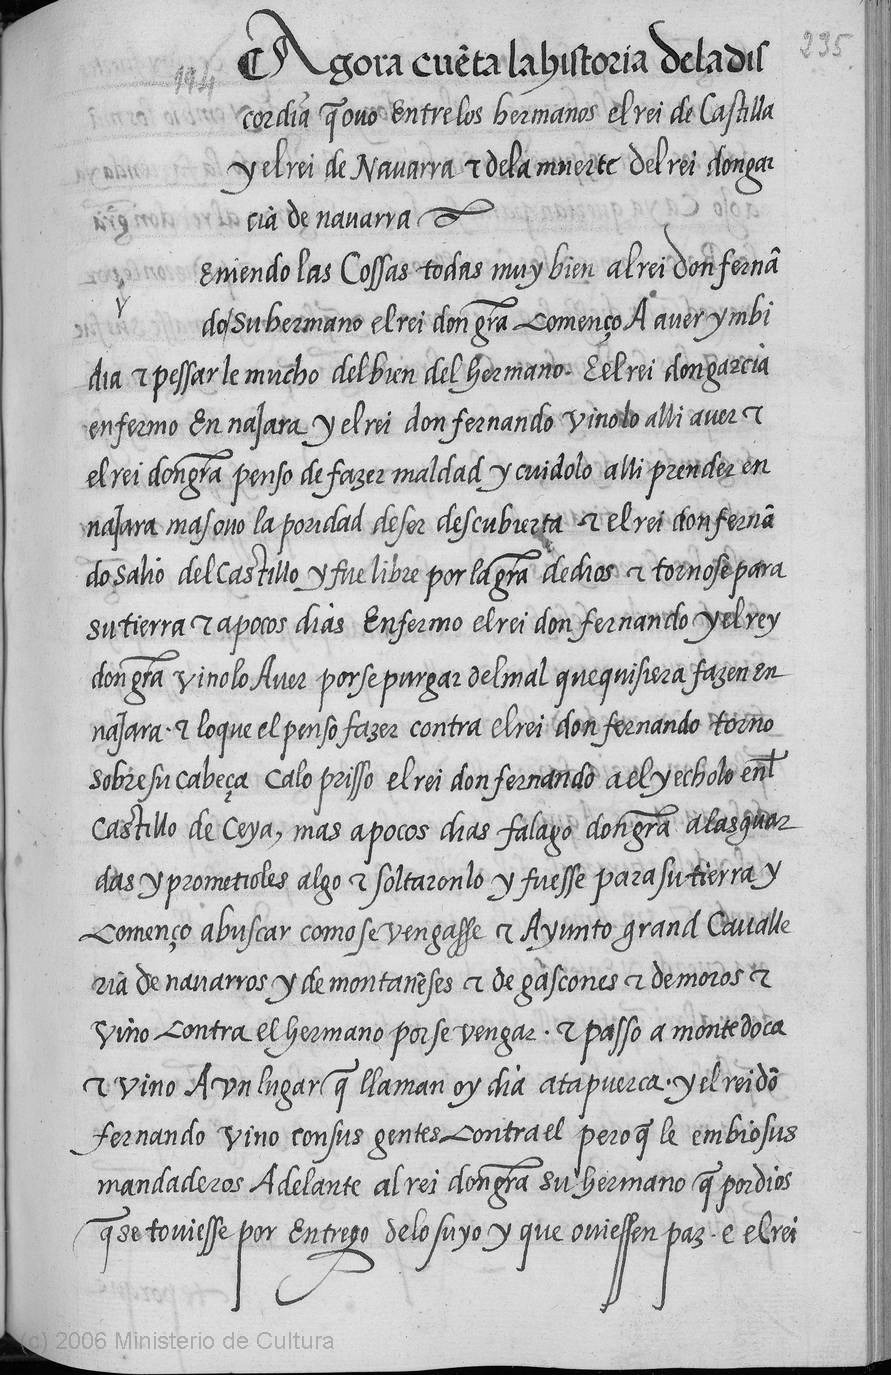 235
194
Agora cuēta la historia de la dis
cordia q̄ ouo Entre los hermanos el rei de Castilla
y el rei de Nauarra τ de la muerte del rei don gar
cia de nauarra
Eniendo las Cossas todas muy bien al rei don fernā
y
do su hermano el rei don gr̄a Començo A auer ymbi
dia τ pessar le mucho del bien del hermano. E el rei don garcia
enfermo En najara y el rei don fernando vinolo alli a uer τ
el rei don gr̄a penso de fazer maldad y cuidolo alli prender en
najara mas ouo la poridad de ser descubierta τ el rei don fernā
do salio del Castillo y fue libre por la gr̄a de dios τ tornose para
su tierra τ a pocos dias Enfermo el rei don fernando y el rey
don gr̄a vinolo A uer por se purgar del mal que quisiera fazen En
najara. τ lo que el penso fazer contra el rei don fernando torno
sobre su cabeça Ca lo prisso el rei don fernando a el y echolo enl
Castillo de Ceya, mas a pocos dias falago don gr̄a a las guar
das y prometioles algo τ soltaronlo y fuesse para su tierra y
Començo a buscar como se vengasse τ Ayunto grand Caualle
ria de nauarros y de montañeses τ de gascones τ de moros τ
vino Contra el hermano por se vengar. τ passo a monte doca
τ vino A vn lugar q̄ llaman oy dia atapuerca. y el rei dō
fernando vino con sus gentes Contra el pero q̄ le embio sus
mandaderos Adelante al rei don gr̄a su hermano q̄ por dios
q̄ se touiesse por Entrego de lo suyo y que ouiessen paz. e el rei
(c) 2006 Ministerio de Cultura